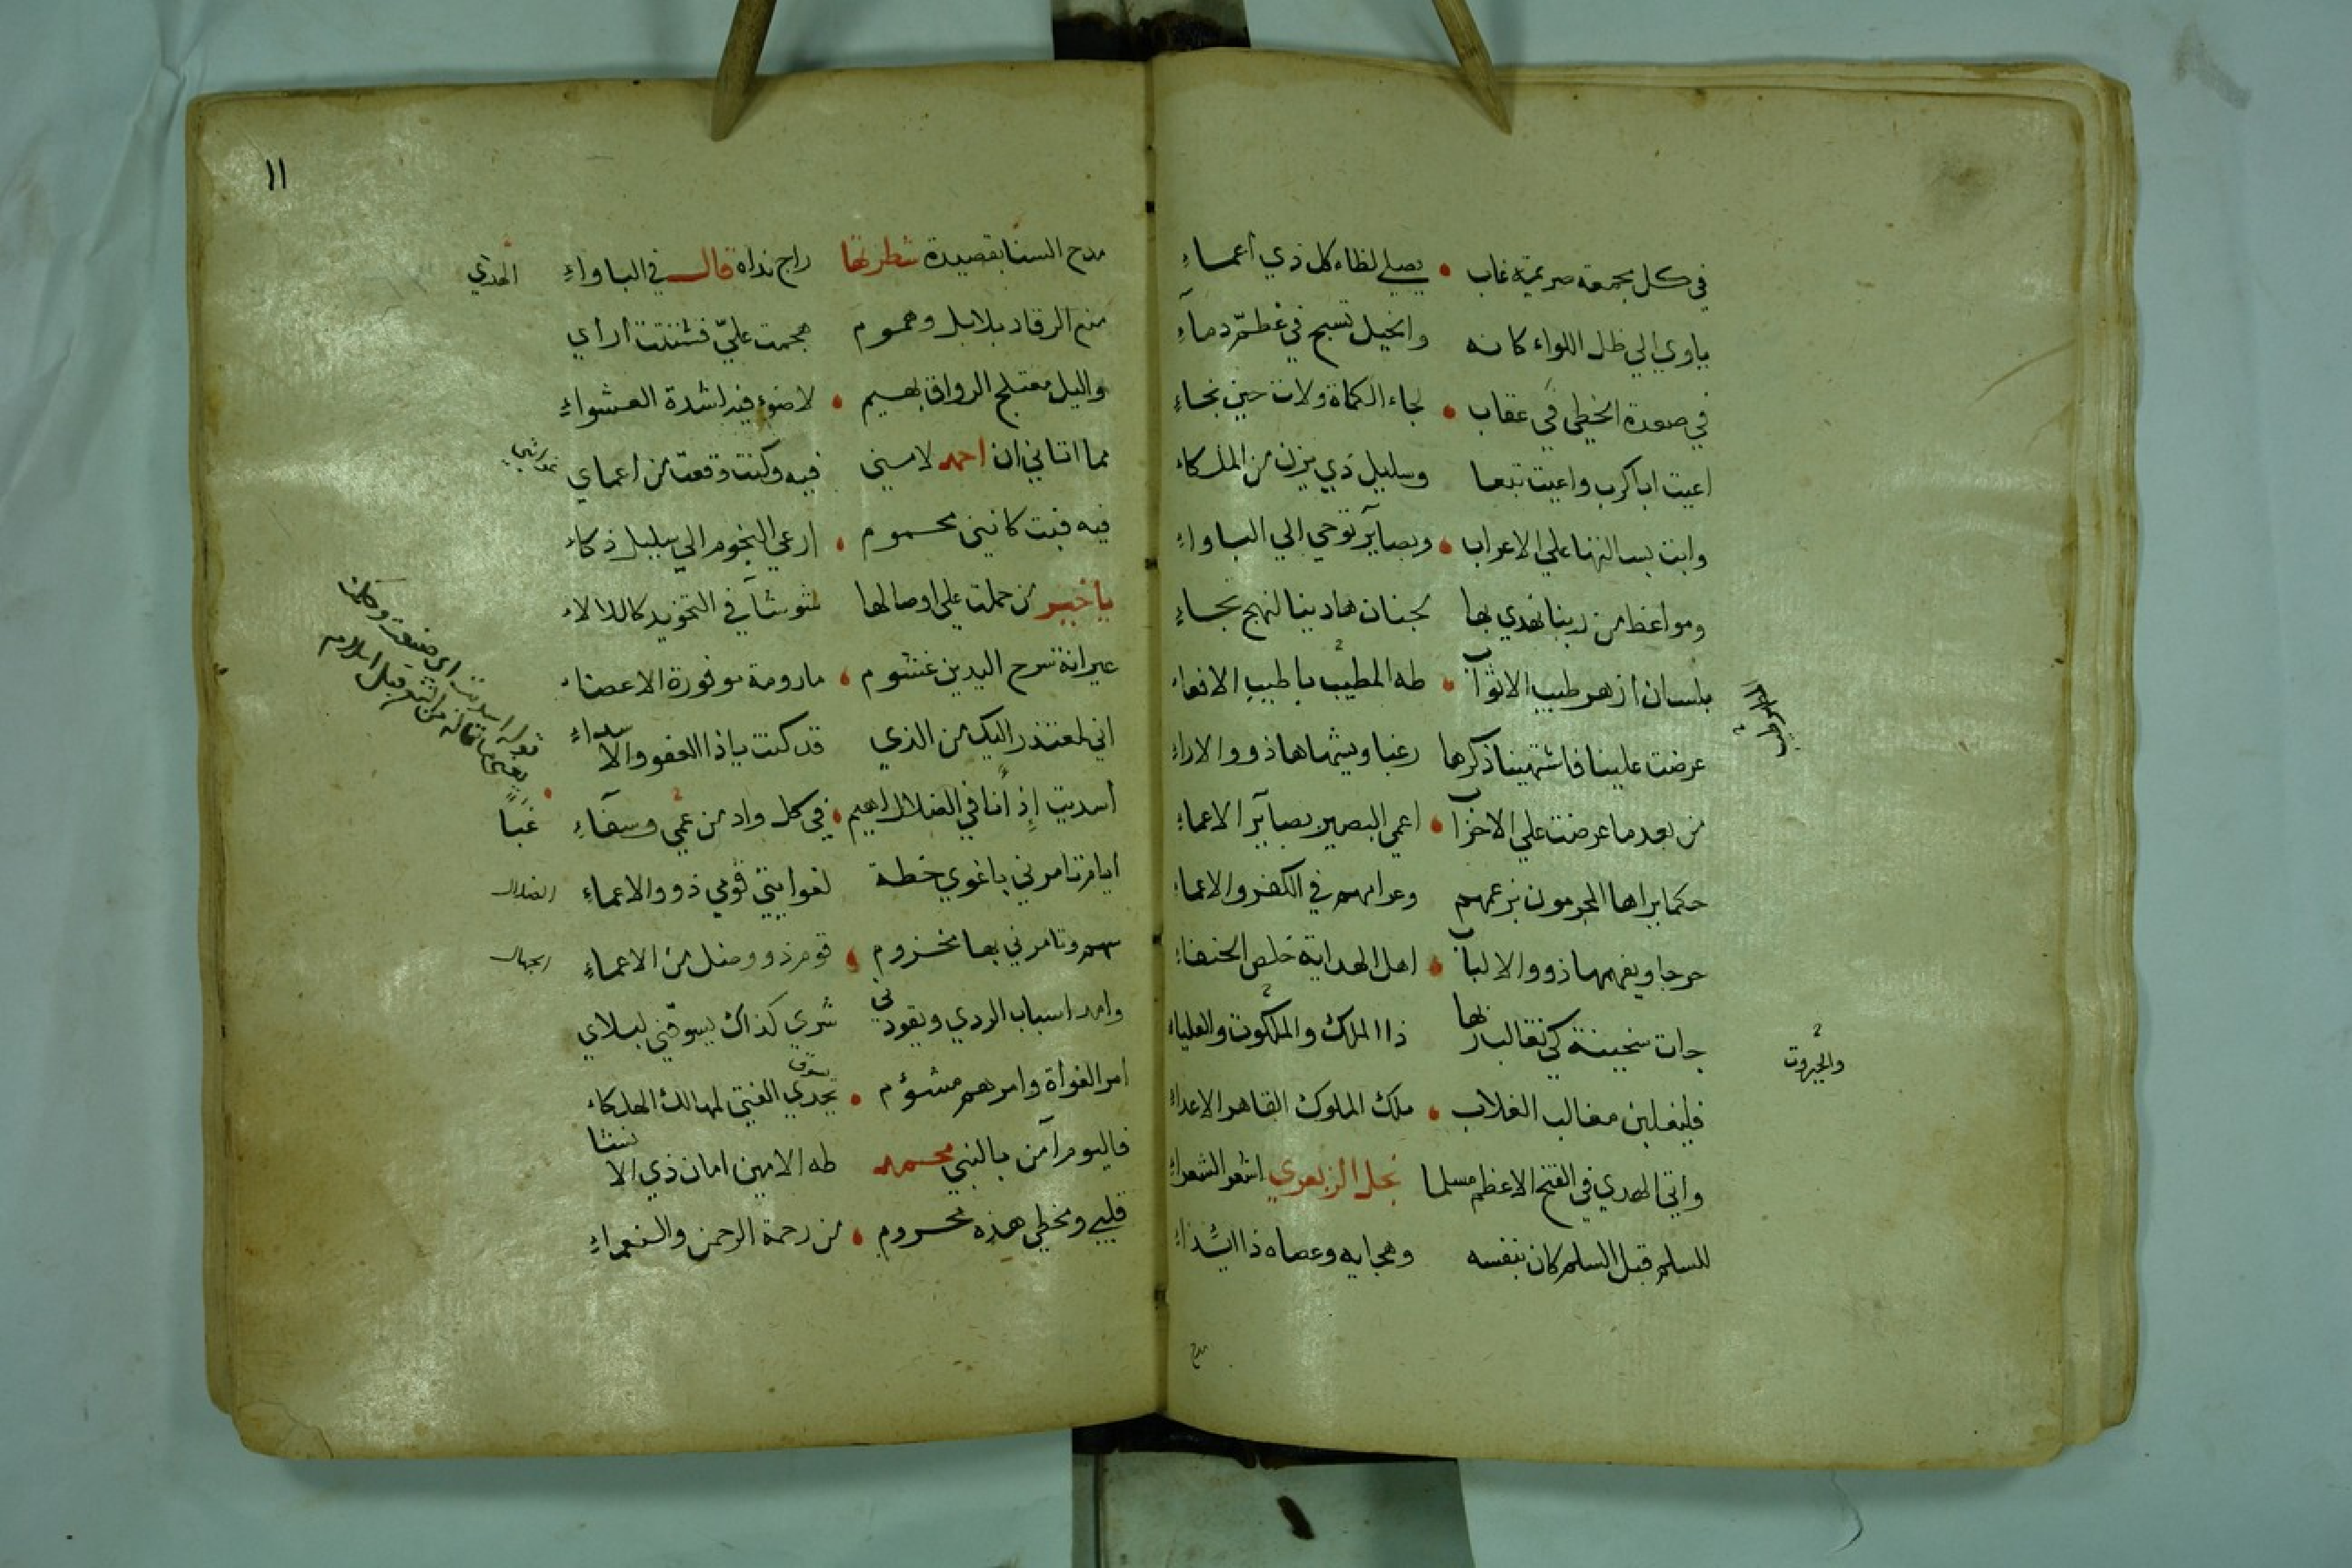 في كل مجمعة صريمة غاب • يصلي لظاء كل ذي أعماء
ياوي الي ظل اللواء كانه وانخيل تسبح في غطم دماء
في صعدة الخطي في عقاب • لجاء الكماة ولات حين نجاء
اعيت ابا كرب واعيت تبعا وسليل ذي يزن من الملكاء
وابت بسالتها علي الاعراب • وبصاير توحي الي الباواء
ومواعظ من ربنا نهدي بها لجنان هادينا لنهج نجاء
بلسان ازهر طيب الاثواب • طه المطيب باطيب الافعاء
عرضت علينا فاشتهينا ذكرها رغبا ويشهاها ذوو الاراء
من بعد ما عرضت علي الاحزاب • اعمي البصير بصاير الاعماء
حكما يراها المجرمون بزعمهم وعرامهم في الكفر والاعماء
حرجا ويفهمها ذوو الالباب • اهل الهداية خلص الحنفاء
جات سخينة كي تغالب ربها ذا الملك والملكوت والعلياء
والجبروت
فليغلبن مغالب الغلاب • ملك الملوك القاهر الاعداء
واتي الهدي في الفتح الاعظم مسلما نجل الزبعري اشعر الشعراء
للسلم قبل السلم كان بنفسه وهجا به وعصاه ذا
مدح
١١
مدح السنا بقصيدة شطرتها راج نداه قال في الباواء
الهدي
منع الرقاد بلابل وهموم هجمت علي فشتتت أراي
واليل معتلج الرواق بهيم • لا ضوء فيه لشدة العشواء
مما اتاني ان احمد لامني فيه وكنت وقعت من اعماي
فيه فبت كانني محموم • ارعي النجوم الي سليل ذكاء
يا خير من حملت علي اوصالها
عيرانة سرح اليدين غشوم • مارومة موفورة الاعضاء
اني لمعتذر اليك من الذي قد كنت ياذا العفو والاسداء
أسديت إذ أنا في الضلال اهيم • في كل واد من عمي وسفاء
غيا
ايام تامرني باغوي خطة لغوايتي قومي ذوو الاعماء
الضلال
سهم وتامرني بها مخزوم • قوم ذوو وصل من الاعماء
الجهال
وامد اسباب الردي ويقودني شري كذاك يسوقني لبلاي
امر الغواة وامرهم مشؤم • يحدي الفتي لمهالك الهلكاء
يسوق
فاليوم آمن بالنبي محمد طه الامين امان ذي الانشا
قلبي ومخطي هذه محروم • من رحمة الرحمن والنعماء
قوله اسديت اي صنعت وحكت
يعني ما قاله من الشعر قبل اسلامه